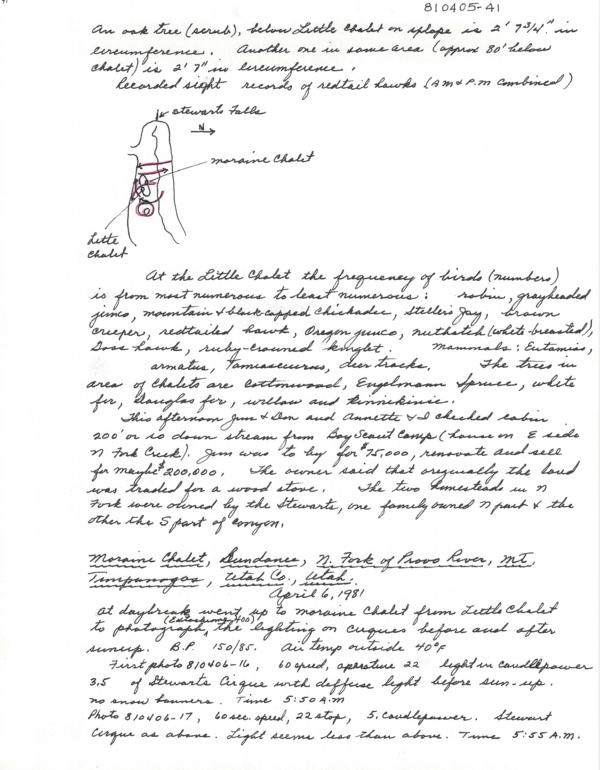 810405-41
An oak tree (scrub), below Little Chalet on splope is 2' 7¾" in
circumference. Another one in same area (approx 80' below
chalet) is 2' 7" in circumference.
Recorded sight records of redtail hawks (AM & P.M combined)
Stewarts Falls
N
moraine Chalet
Little
Chalet
At the Little Chalet the frequency of birds (numbers)
is from most numerous to least numerous: robin, grayheaded
junco, mountain & black capped chickadee, Steller's Jay, brown
creeper, redtailed hawk, Oregon junco, nuthatch (white breasted),
hawk, ruby-crowned kinglet. Mammals: Eutamias,
armatus, Tamiasciurus, deer tracks. The trees in
area of Chalets are Cottonwood, Engelmann Spruce, white
fir, Douglas fir, willow and kinnikinic.
This afternoon Jim & Don and Annette & I checked cabin
200' or so down stream from Boy Scout Camp (house on E side
N Fork Creek). Jim was to by for $75,000, renovate and sell
for maybe $200,000. The owner said that orginally the land
was traded for a wood stove. The two homesteads in N
Fork were owned by the Stewarts, one family owned N part & the
other the S part of canyon.
Moraine Chalet, Sundance, N. Fork of Provo River, Mt.
Timpanogos, Utah Co., Utah.
April 6, 1981
At daybreak went up to moraine Chalet from Little Chalet
to photograph (Ektachrome 400) the lighting on cirques before and after
sunup. B.P. 150/85. Air temp outside 40°F
First photo 810406-16, 60 speed, aperature 22 light in candlepower
3.5 of Stewarts Cirque with deffuse light before sun-up.
no snow banners. Time 5:50 A.M
Photo 810406-17, 60 sec. speed, 22 stop, 5. candlepower. Stewart
Cirque as above. Light seems less than above. Time 5:55 A.M.